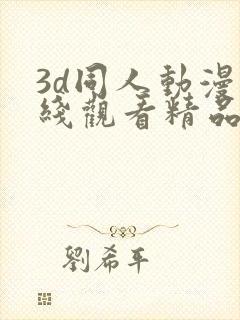 3d同人動漫
綫觀看精品
劉希平